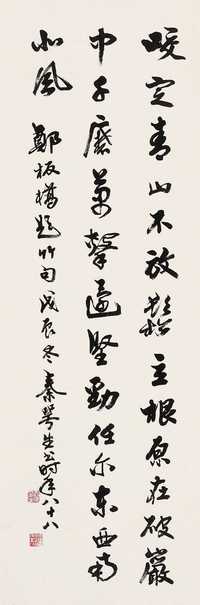 咬定青山不放鬆立根原在破巖
中千磨萬擊還堅勁任尔東西南
北風
鄭板橋題竹句戊辰冬秦咢生時年八十八